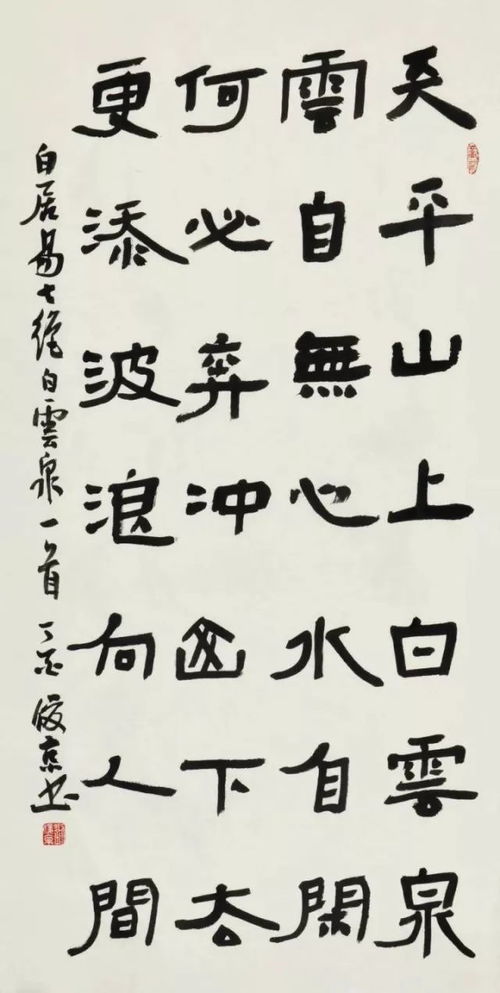 天平山上白雲泉
雲自無心水自閑
何必奔冲山下去
更添波浪向人間
白居易七绝白雲泉一首 丁酉 俊京书